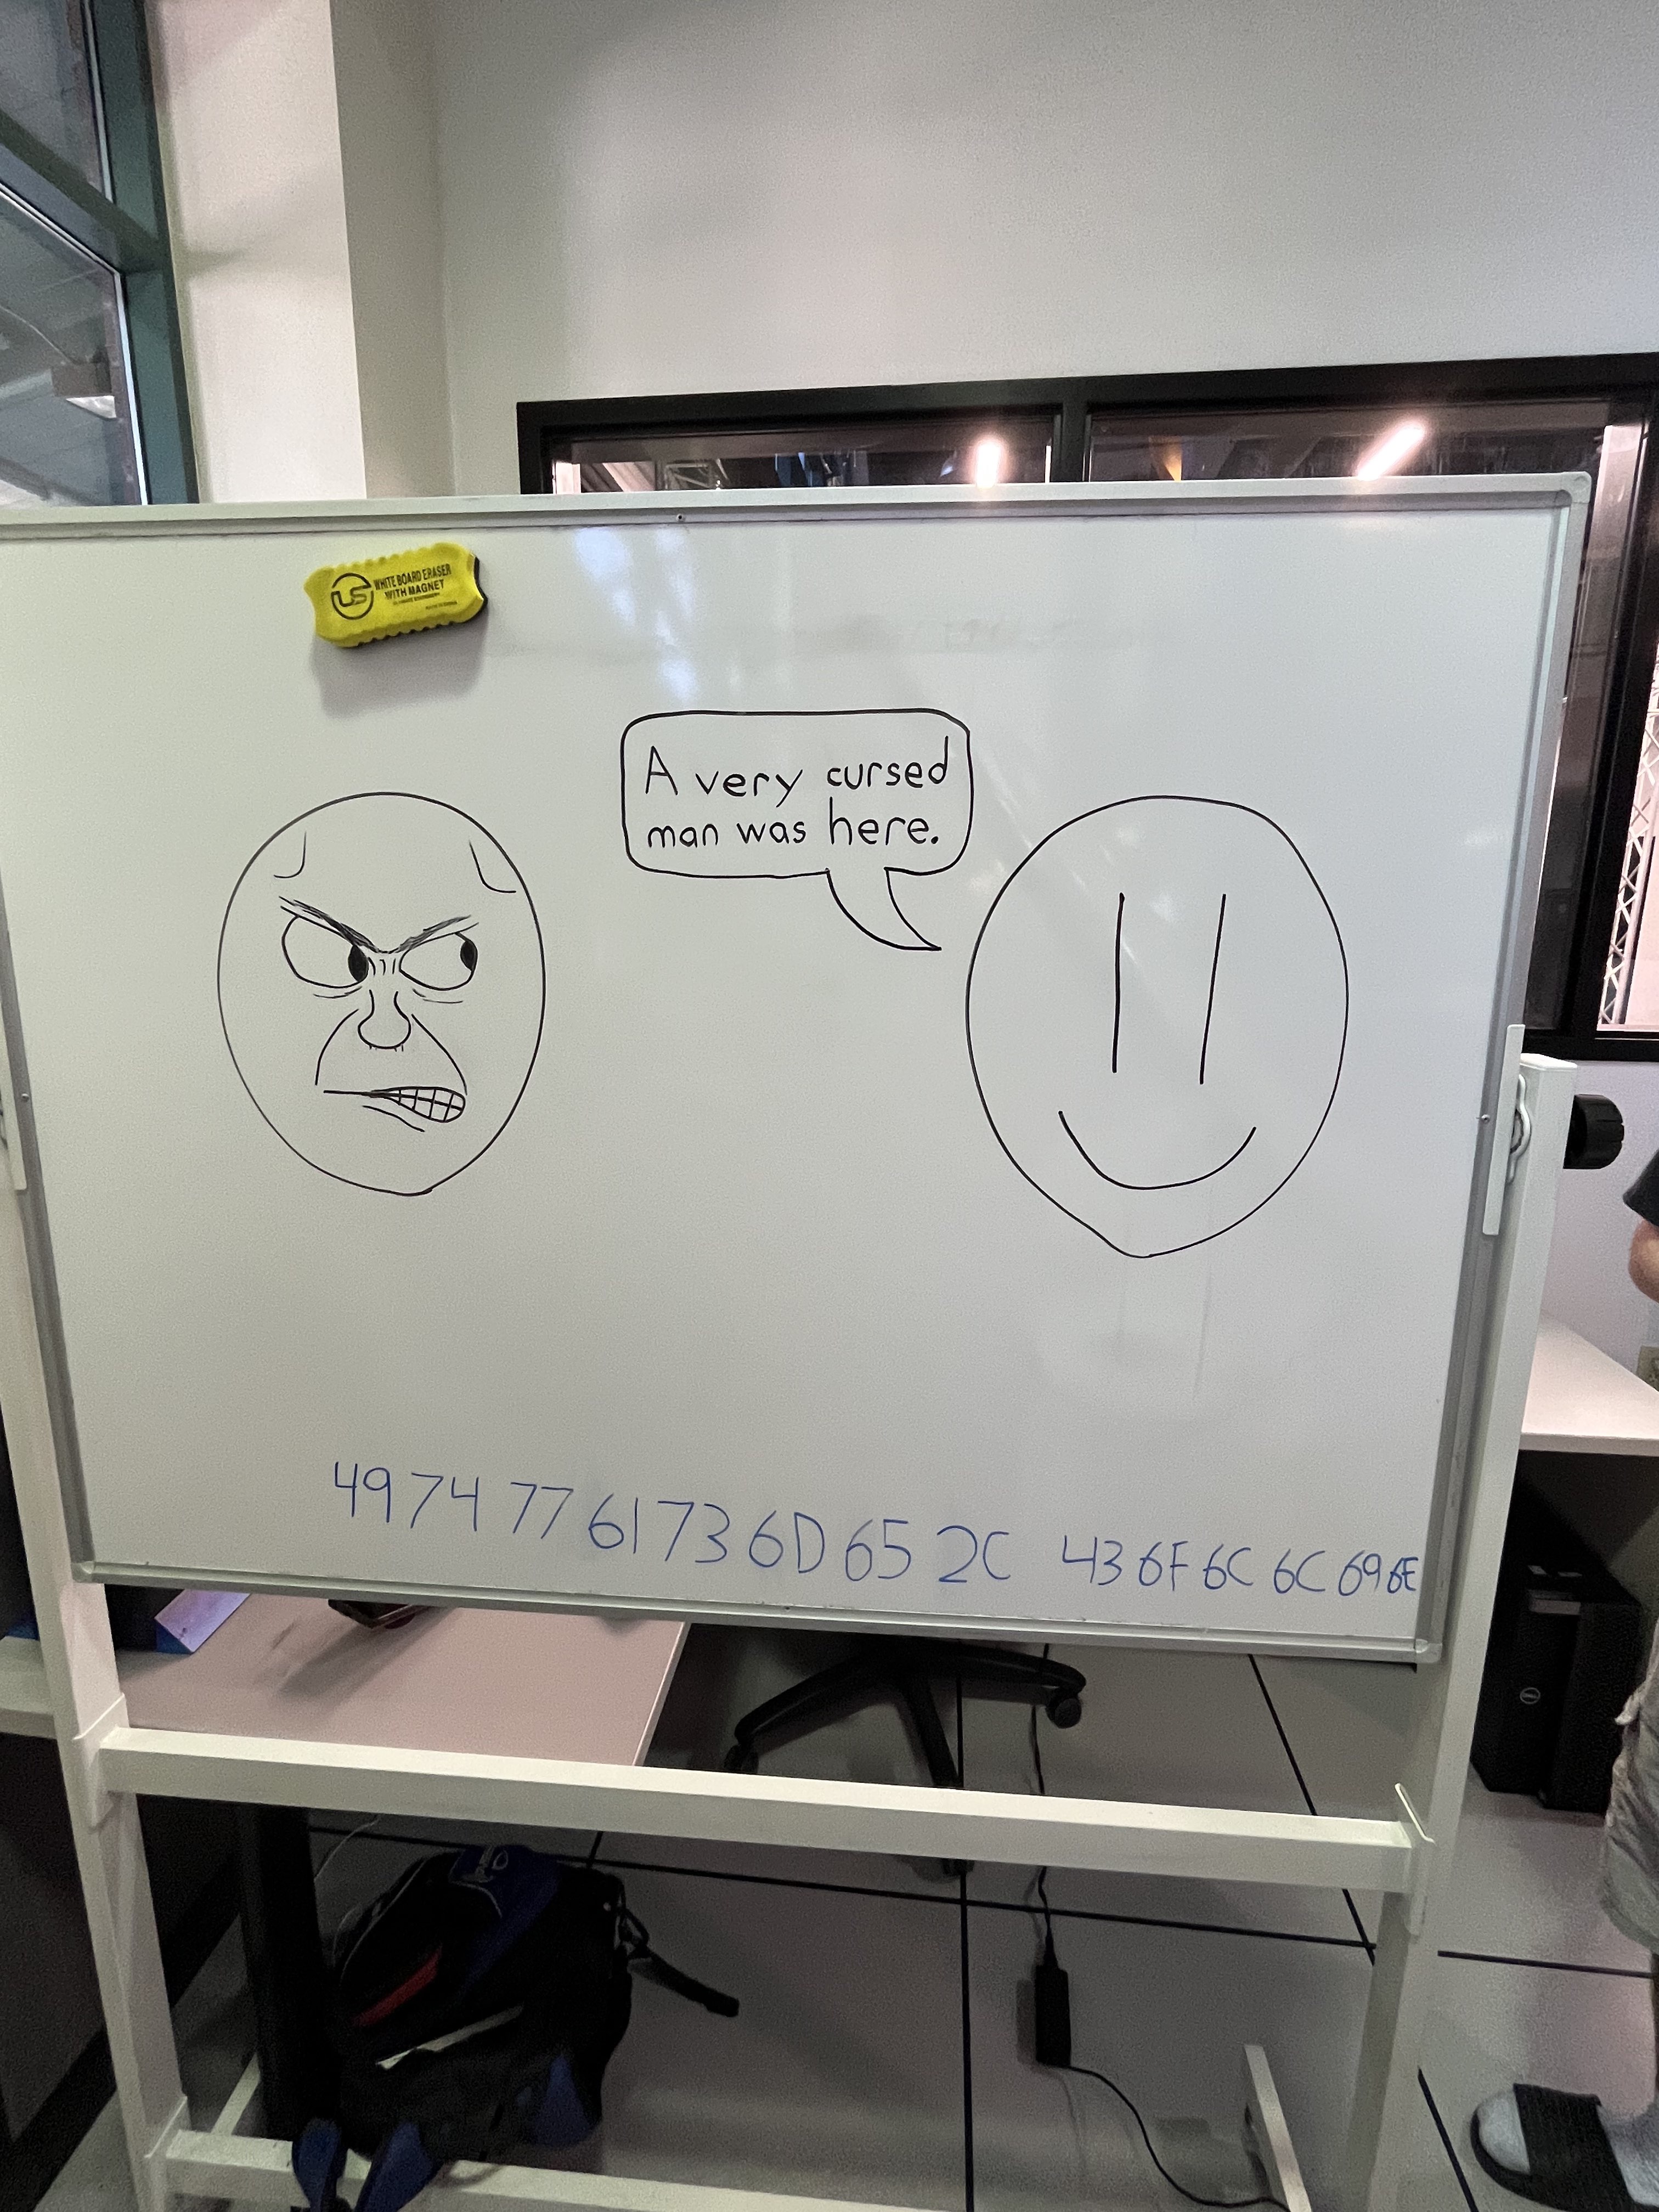 US
WHITE BOARD ERASER
WITH MAGNET
A very cursed
man was here.
49 74 77 61 73 6D 65 2C 43 6F 6C 6C 69 6E